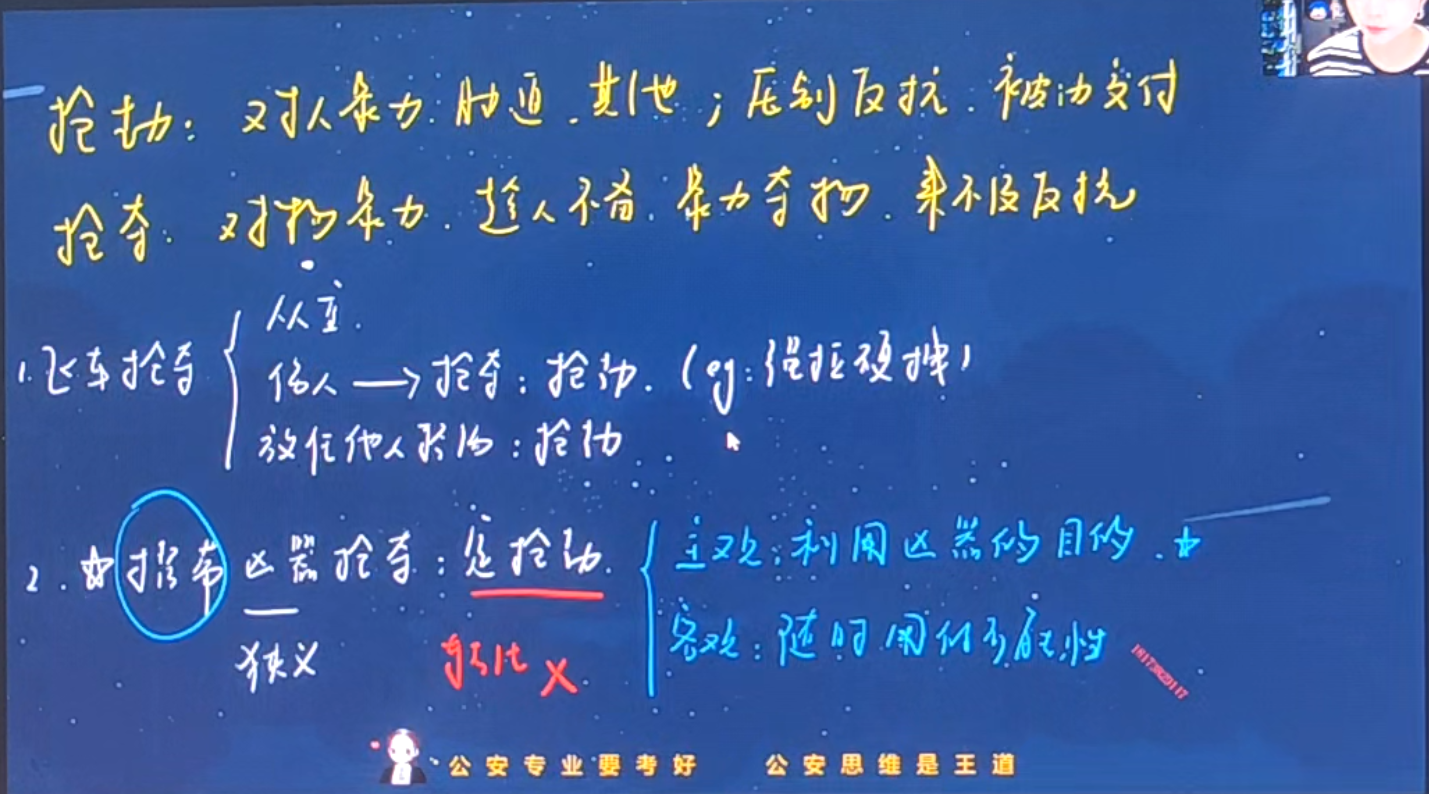 抢劫：对人暴力.胁迫.其他；压制反抗.被动交付
抢夺：对物暴力.趁人不备.暴力夺物.来不及反抗
1.飞车抢夺
从重.
伤人→抢夺：抢劫.（eg:强拉硬拽）
放任他人损伤：抢劫
2.☆携带凶器抢夺：定抢劫.
主观：利用凶器的目的.☆
客观：随时使用的可能性
狭义
转化×
18173829117
公安专业要考好 公安思维是王道